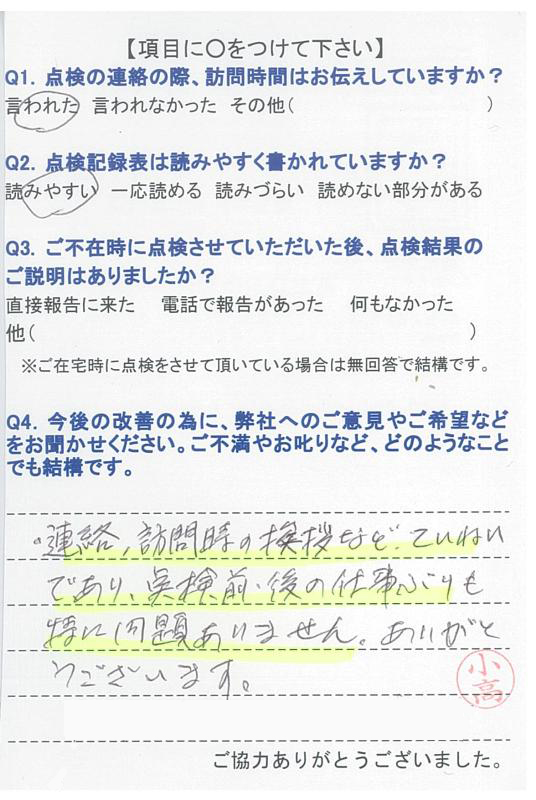 【項目に○をつけて下さい】
Q1. 点検の連絡の際、訪問時間はお伝えしていますか？
言われた 言われなかった その他( )
Q2. 点検記録表は読みやすく書かれていますか？
読みやすい 一応読める 読みづらい 読めない部分がある
Q3. ご不在時に点検させていただいた後、点検結果の
ご説明はありましたか？
直接報告に来た 電話で報告があった 何もなかった
他( )
※ご在宅時に点検をさせて頂いている場合は無回答で結構です。
Q4. 今後の改善の為に、弊社へのご意見やご希望など
をお聞かせください。ご不満やお叱りなど、どのようなこと
でも結構です。
・連絡、訪問時の挨拶など、ていねい
であり、点検前・後の仕事ぶりも
特に問題ありません。ありがと
うございます。
小高
ご協力ありがとうございました。